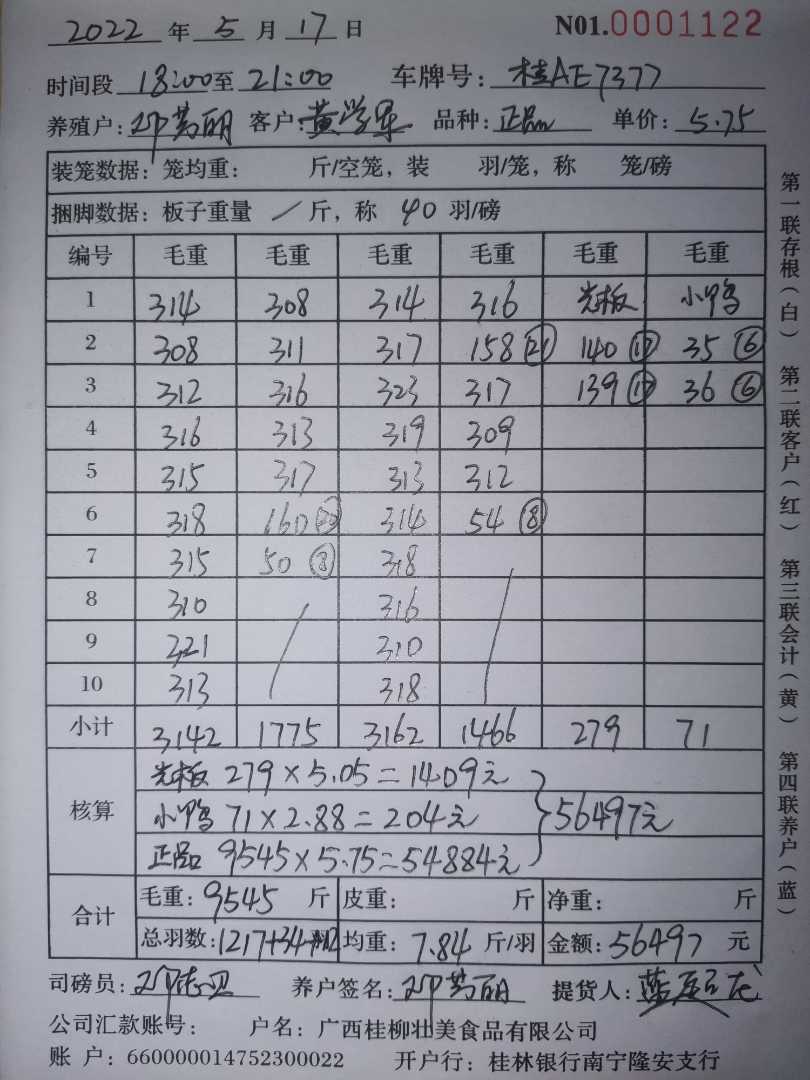 2022 年 5 月 17 日 N01.0001122
时间段 18:00 至 21:00 车牌号: 桂AE7377
养殖户: 邓芳丽 客户: 黄学军 品种: 正品 单价: 5.75
装笼数据: 笼均重: 斤/空笼, 装 羽/笼, 称 笼/磅
捆脚数据: 板子重量 / 斤, 称 40 羽/磅
编号 毛重 毛重 毛重 毛重 毛重 毛重
1 314 308 314 316 光板 小鸭
2 308 311 317 158 (21) 140 (17) 35 (6)
3 312 316 323 317 139 (17) 36 (6)
4 316 313 319 309
5 315 317 313 312
6 318 160 (20) 314 54 (8)
7 315 50 (8) 318
8 310 316
9 321 310
10 313 318
小计 3142 1775 3162 1466 279 71
核算
光板 279×5.05=1409元
小鸭 71×2.88=204元
正品 9545×5.75=54884元
}56497元
合计
毛重: 9545 斤 皮重: 斤 净重: 斤
总羽数: 1217+34+12 均重: 7.84 斤/羽 金额: 56497 元
司磅员: 养户签名: 邓芳丽 提货人:
公司汇款账号: 户名: 广西桂柳壮美食品有限公司
账 户: 660000014752300022 开户行: 桂林银行南宁隆安支行
第一联存根(白) 第二联客户(红) 第三联会计(黄) 第四联养户(蓝)